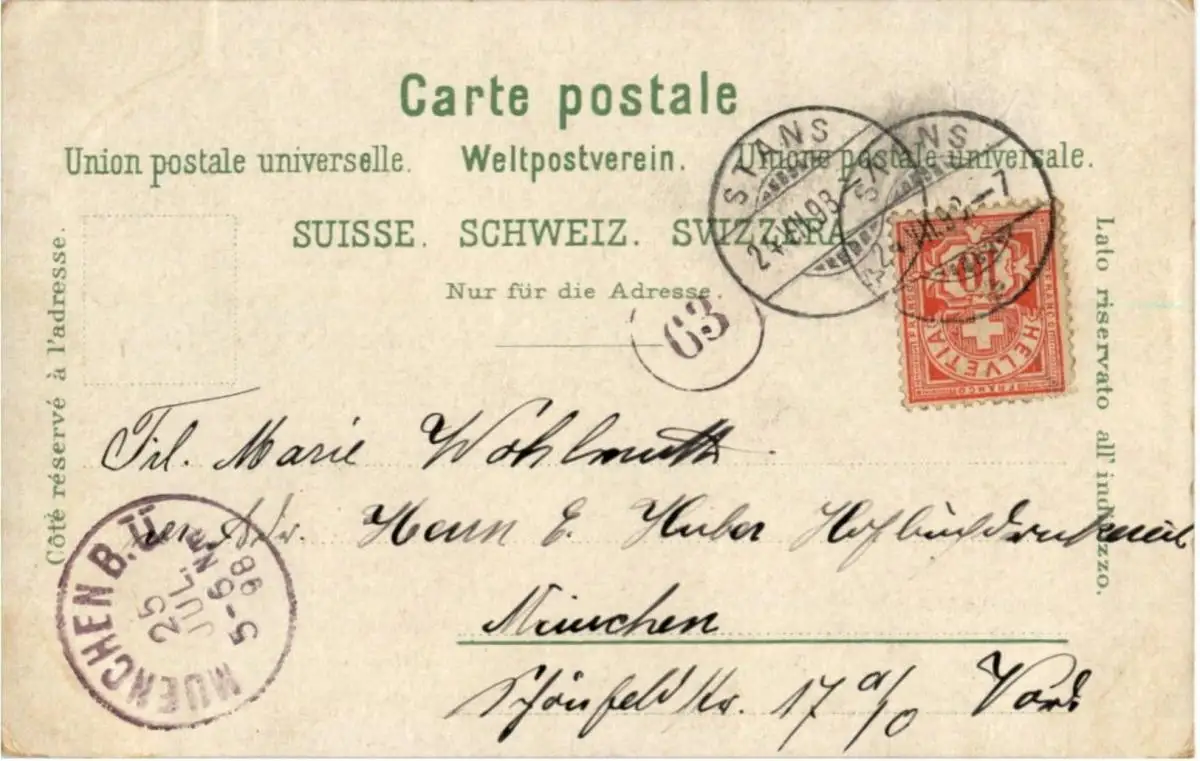 Carte postale
Union postale universelle. Weltpostverein. Unione postale universale.
SUISSE. SCHWEIZ. SVIZZERA
Nur für die Adresse.
Côté réservé à l'adresse.
Lato riservato all' indirizzo.
STANS
STANS
63
FRANCO
10
HELVETIA
FRANCO
Frl. Marie Wohlmuth
per Adr. Herrn E. Huber Hofbuchdruckerei
München
Schönfeldstr. 17 a/0
MUENCHEN B. Ü
25
JUL.
5-6 N.
98